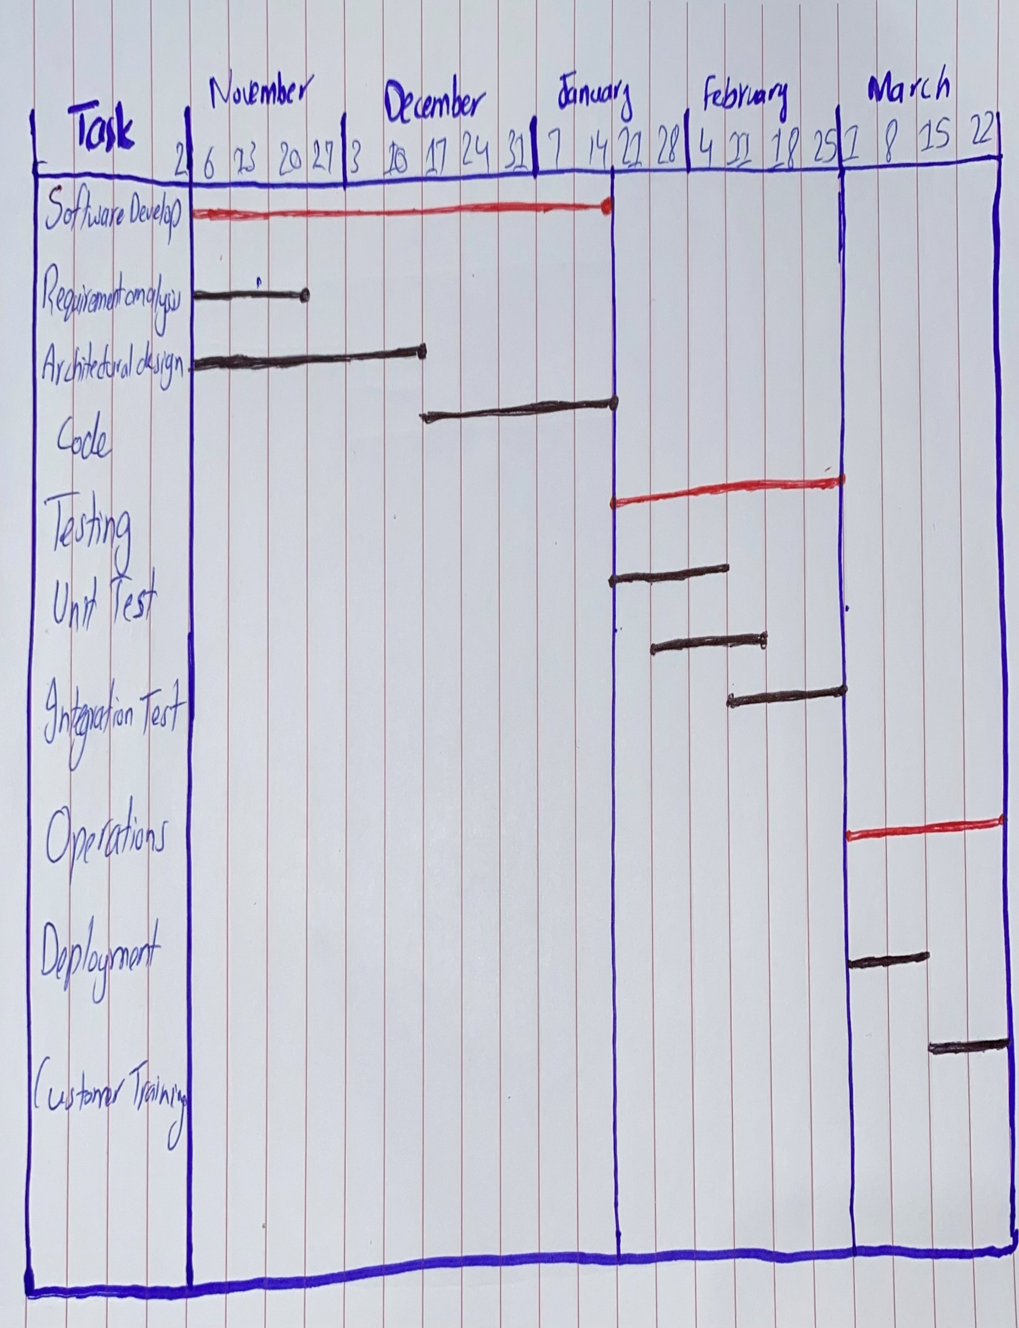 November December January February March
Task
2 6 13 20 27 3 10 17 24 31 7 14 21 28 4 11 18 25 1 8 15 22
Software Develop
Requirement analysis
Architectural design
Code
Testing
Unit Test
Integration Test
Operations
Deployment
Customer Training